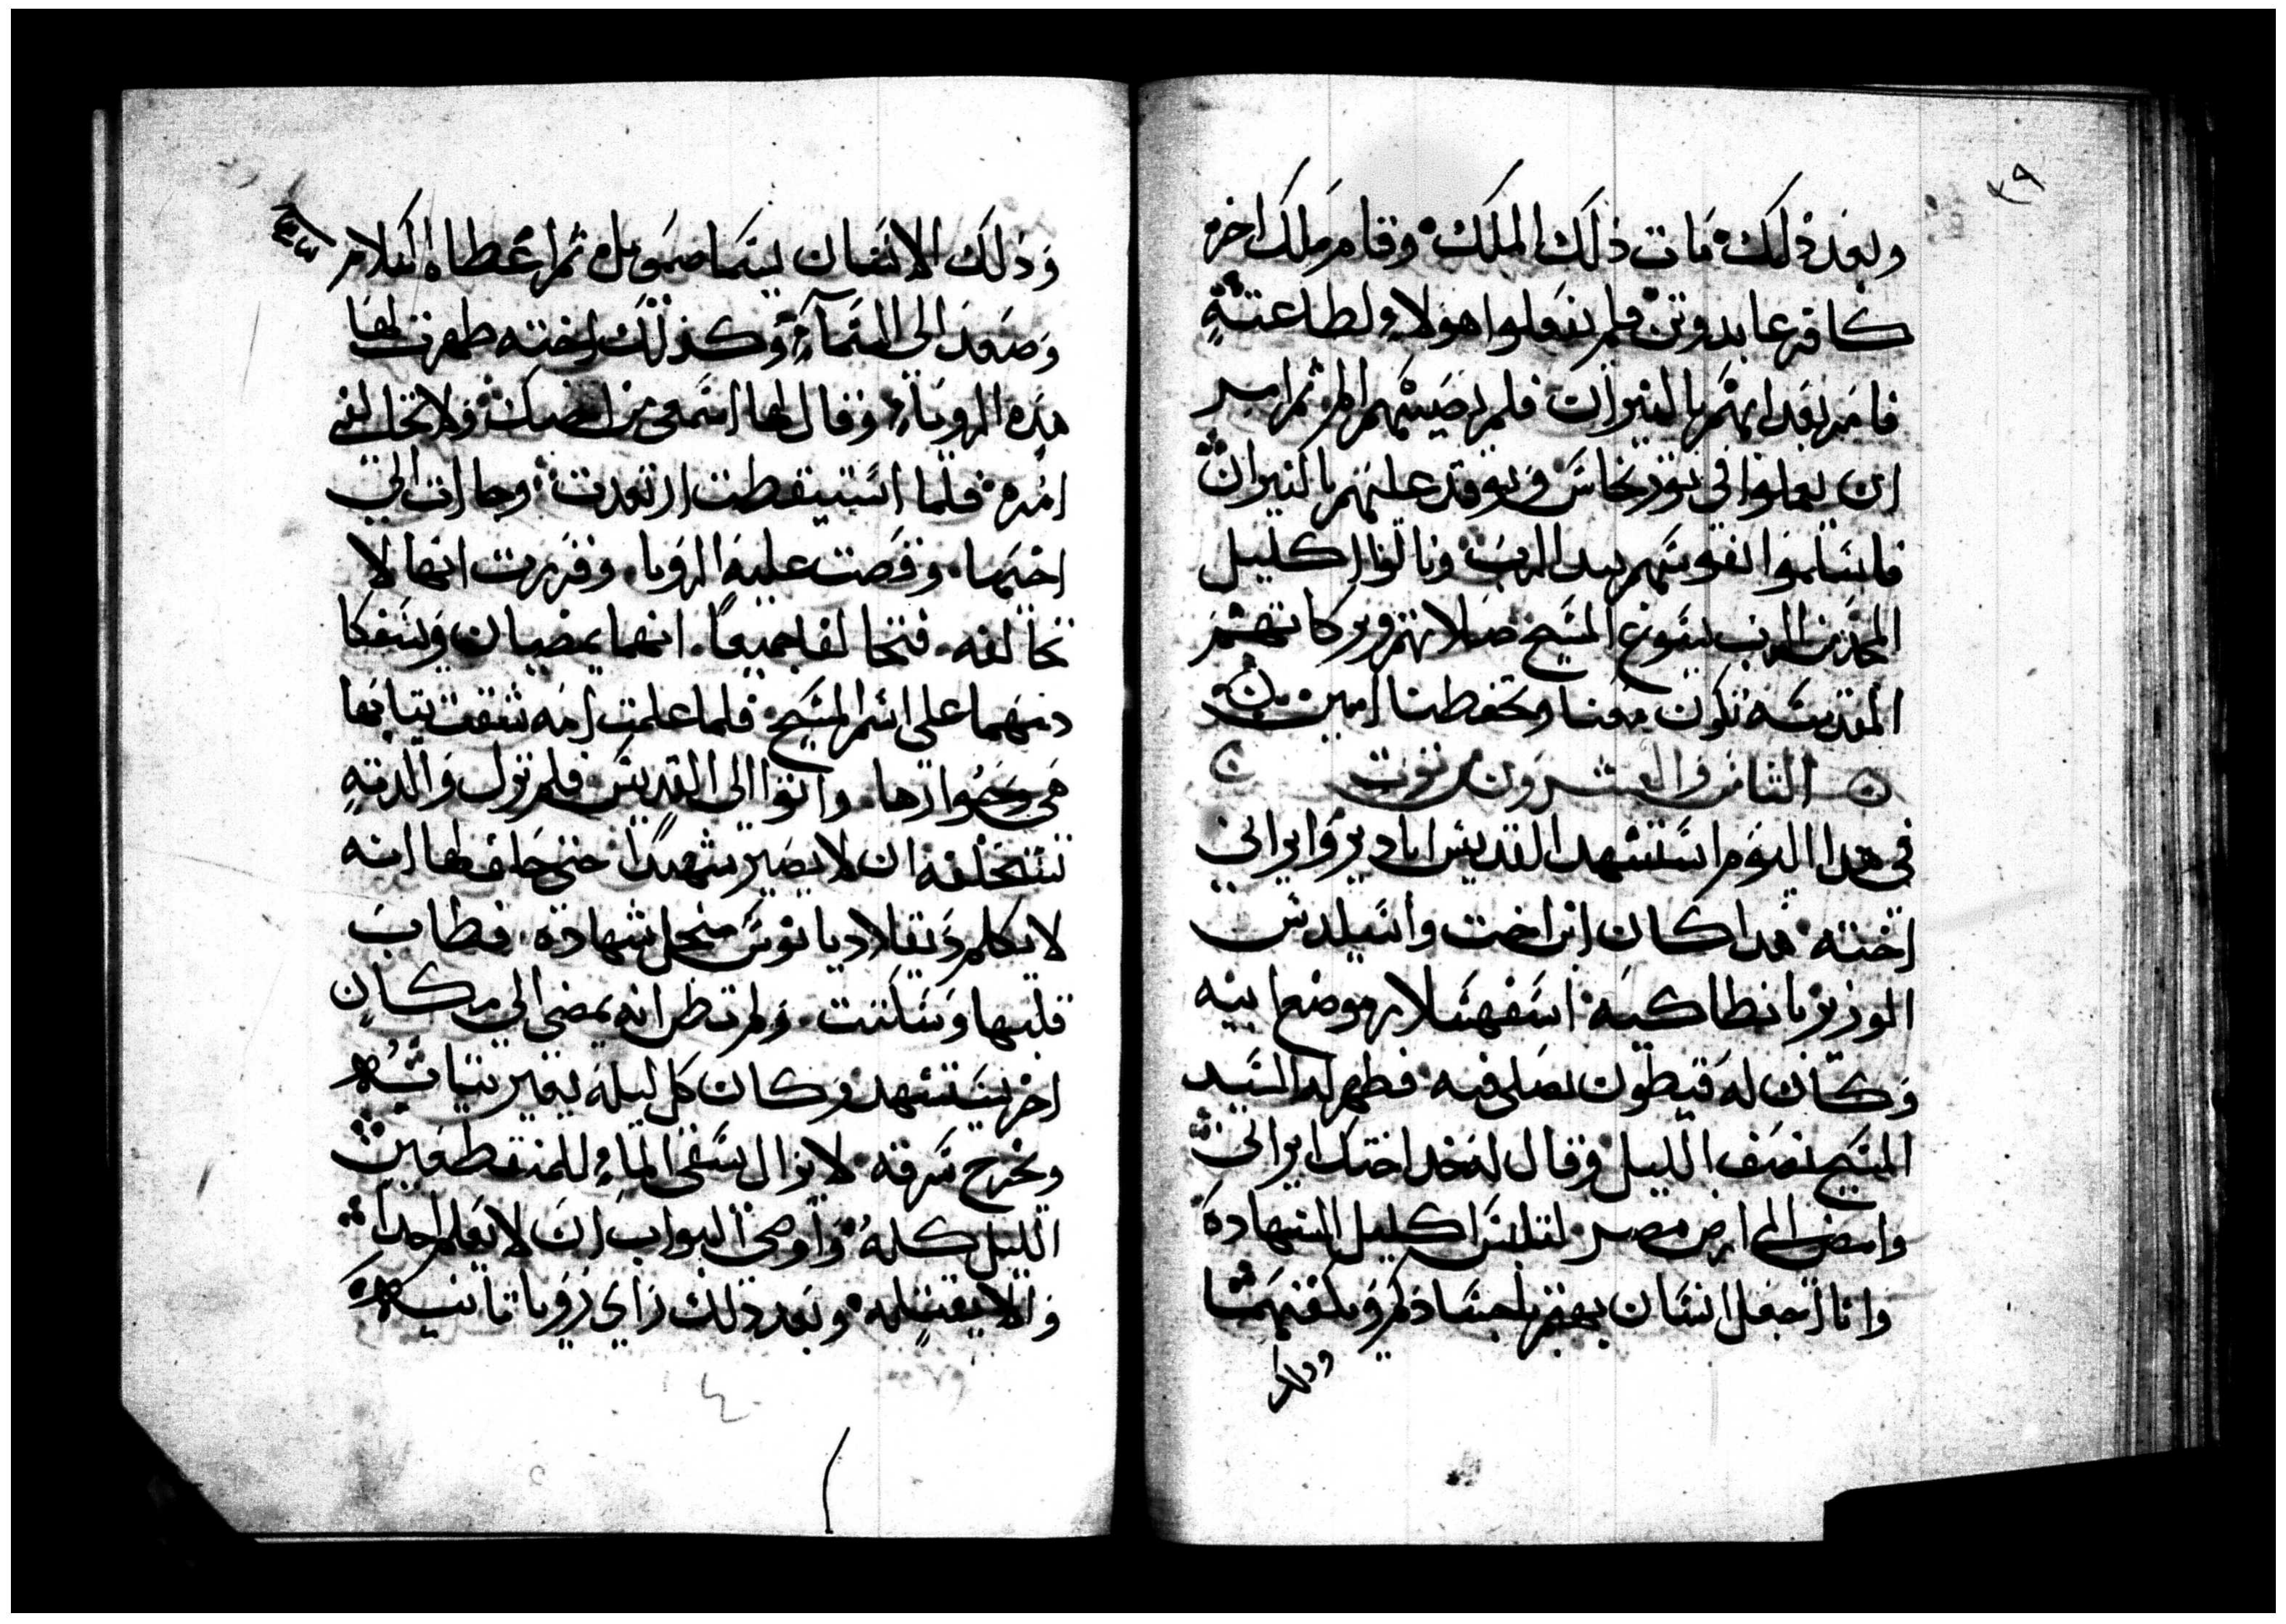 ٣٩
وبعد ذلك مات ذلك الملك وقام ملك اخر
كافر عابد وتن فلم يفعلوا هولاء لطاعته
فامر بعدابهم بالنيران فلم يصيبهم الم ثم امر
ان يعلوا في تور نحاس ويوقد عليهم بالنيران
فاسلموا نفوسهم بيد الرب ونالوا اكليل
المجد من الرب يسوع المسيح صلاتهم وبركاتهم
المقدسه تكون معنا وتحفطنا امين
الثاني والعشرون من توت
في هدا اليوم استشهد القديس ابا ديرو ايراني
اخته هدا كان ابن اخت واسيلدس
الوزير بانطاكيه اسفهسلار موضع ابيه
وكان له قيطون يصلي فيه فطهر له السيد
المسيح نصف الليل وقال له خد اختك ايراني
وامض الى ارض مصر لتلبس اكليل الشهادة
وانا اجعل انسان يهتم باجسادكم ويكفنهما
ودلك
وذلك الانسان يسما صمويل ثم اعطاه السلام
وصعد الى السماء وكذلك اخته طهرت لها
هذه الرويا وقال لها اسمعي من اخيك ولا تخالفي
امره فلما استيقطت ارتعدت وجات الى
اخيها وقصت عليه الرويا وقررت انها لا
تخالفه فتحالفا جميعا انهما يمضيان ويسفكا
دمهما على اسم المسيح فلما علمت امه شقت تيابها
هي وجوارها واتوا الى القديس فلم تزل والدته
تستحلفه ان لا يصير شهيدا حتى حلف لها انه
لا يكلم دقلاديانوس من اجل شهادة فطاب
قلبها وسكتت ولم تطن انه يمضى الى مكان
اخر يستشهد وكان كل ليلة يغير تيابه
ويخرج سرقه لا يزال يسقي الماء للمنقطعين
الليل كله واوصى البواب ان لا يعلم احدا
والا يقتله وبعد دلك راي رويا تانيه
٤٠